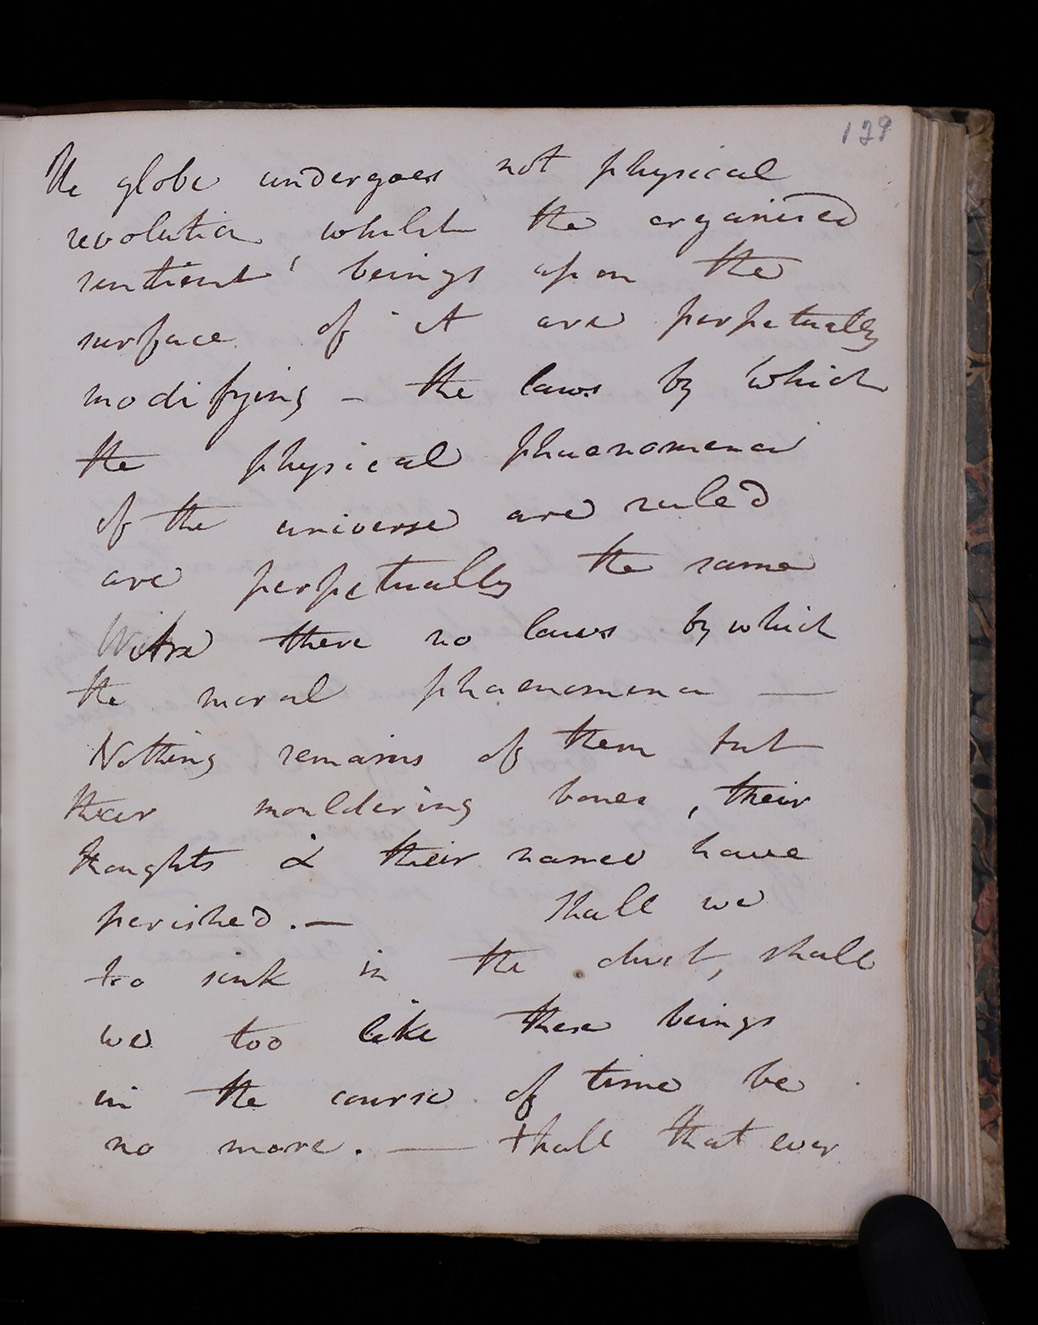 129
the globe undergoes not physical
revolution whilst the organised
sentient beings upon the
surface of it are perpetually
modifying – the laws by which
the physical phaenomena
of the universe are ruled
are perpetually the same
there no laws by which
the moral phaenomena —
Nothing remains of them but
their mouldering bones, their
thoughts & their names have
perished. — Shall we
too sink in the dust, shall
we too like these beings
in the course of time be
no more. — shall that ever